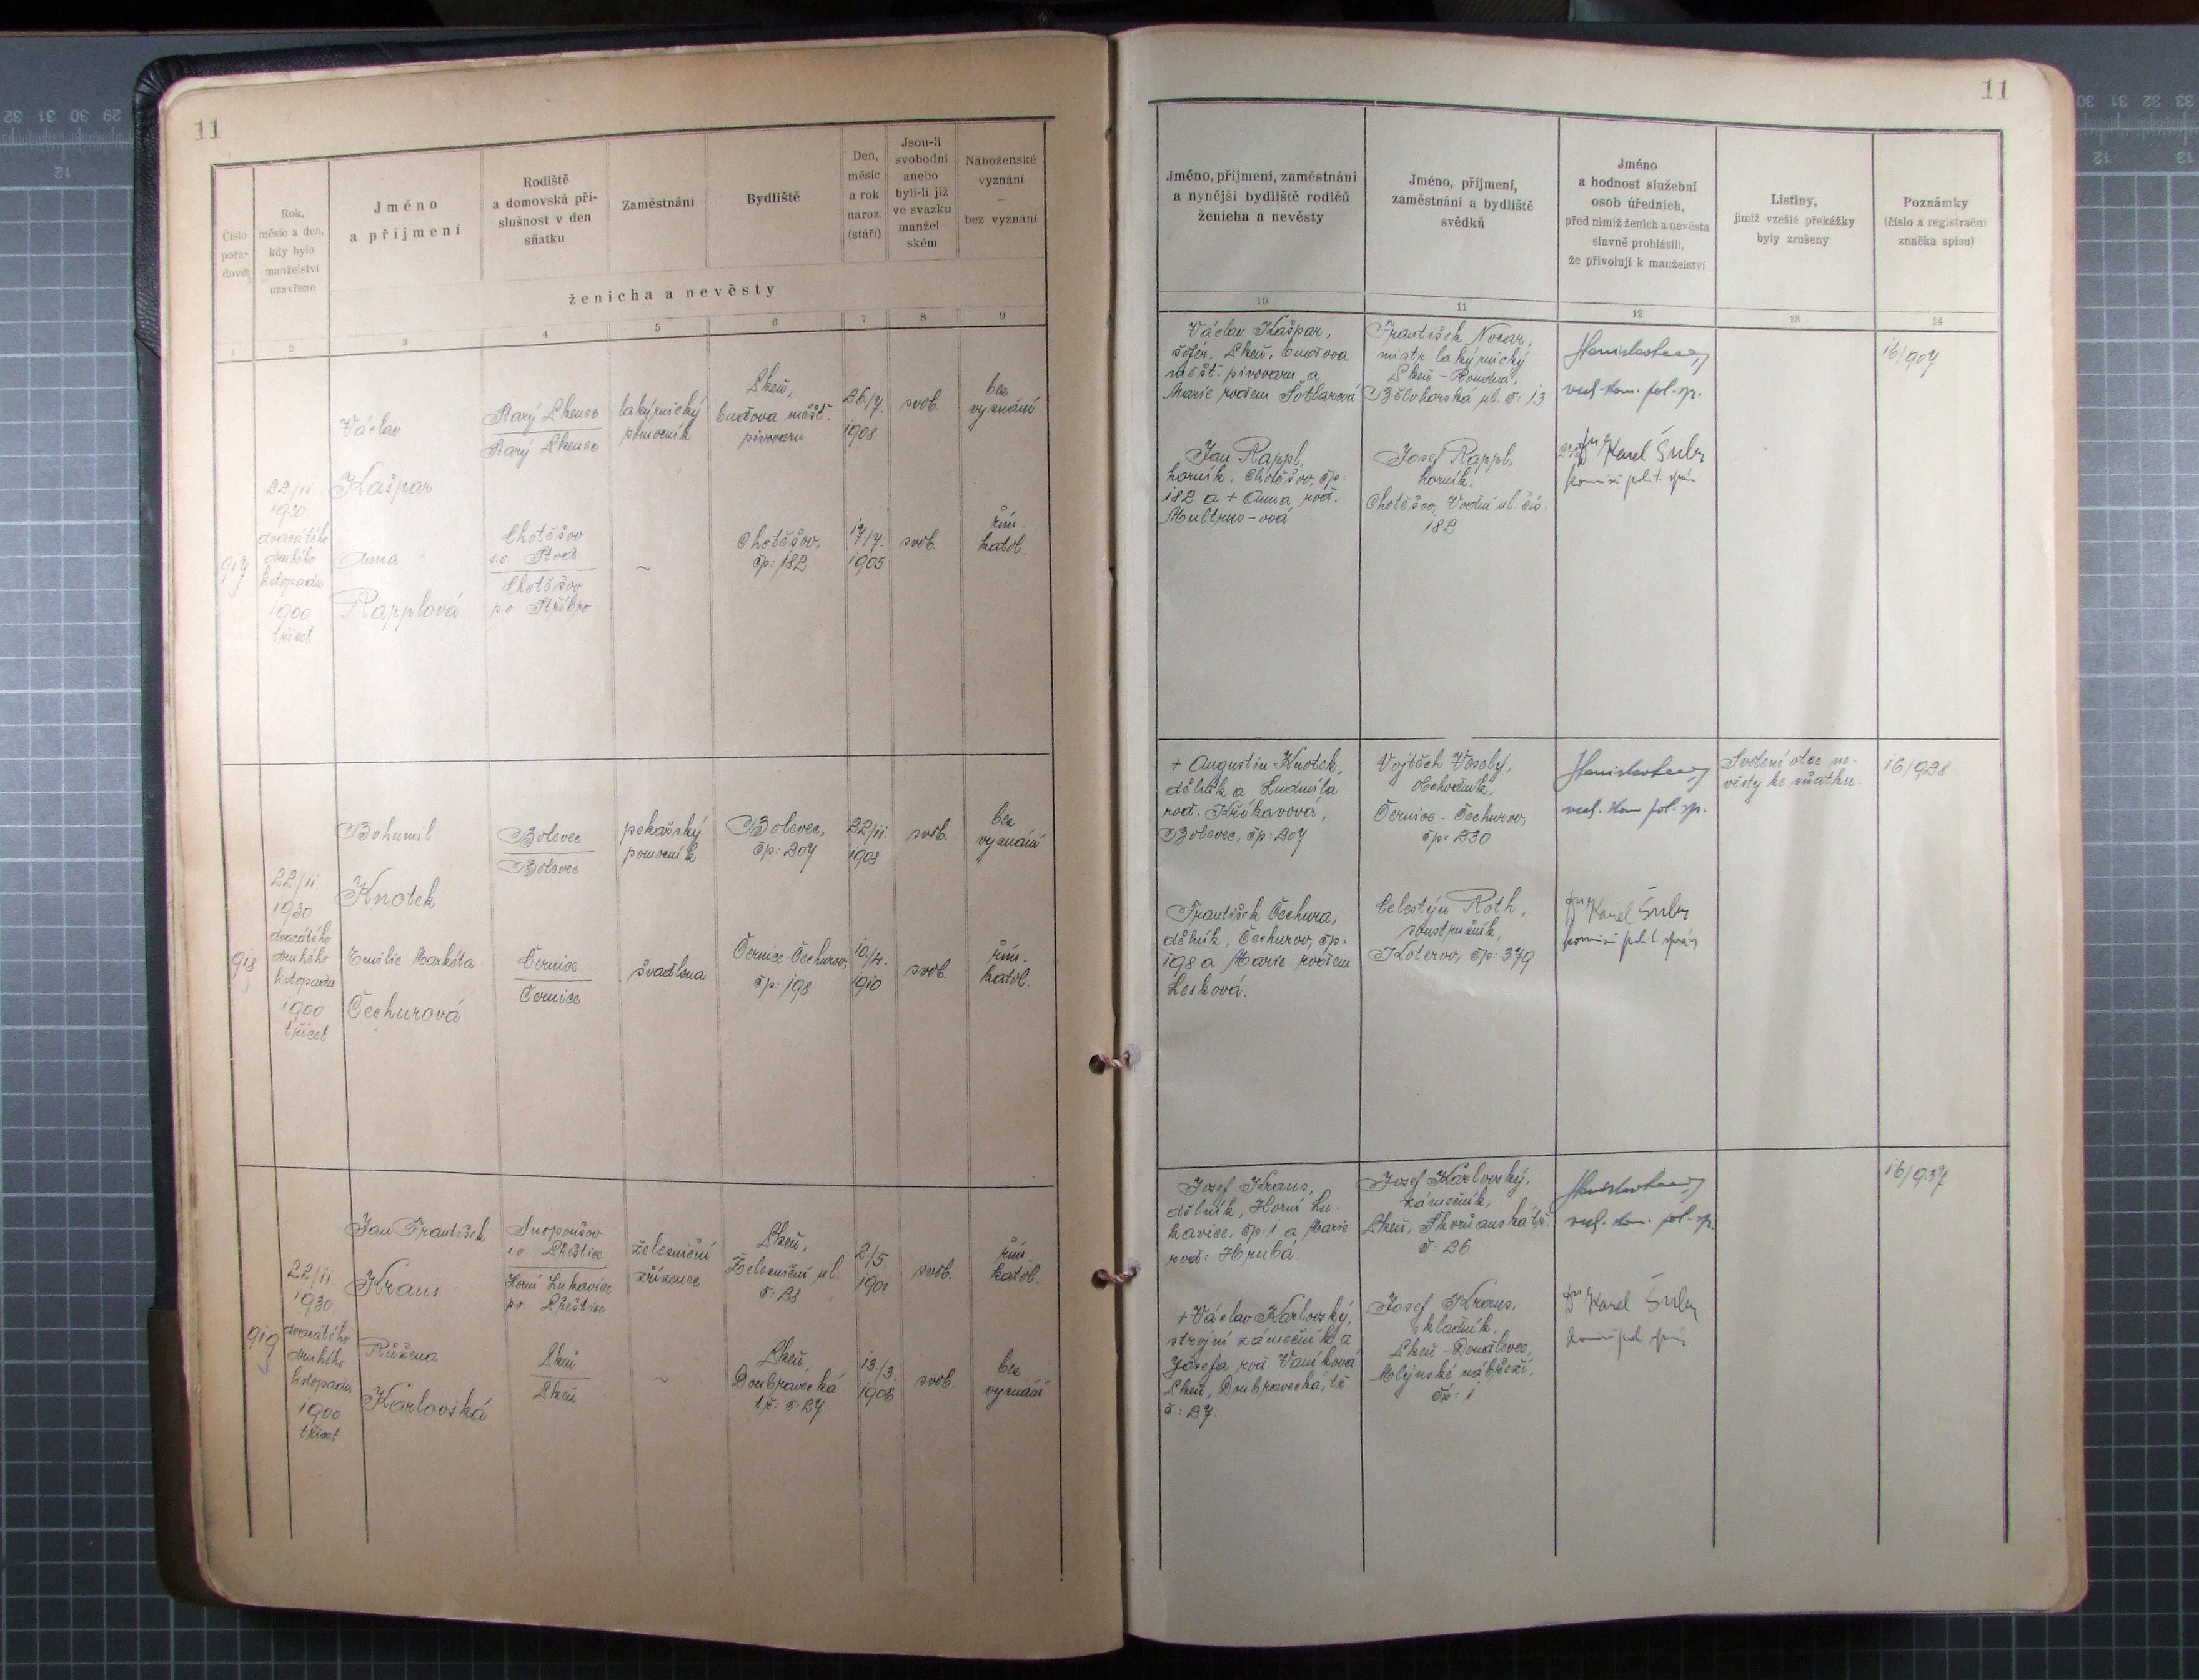 11
Číslo
pořa-
dové
Rok,
měsíc a den,
kdy bylo
manželství
uzavřeno
Jméno
a příjmení
Rodiště
a domovská pří-
slušnost v den
sňatku
Zaměstnání
Bydliště
Den,
měsíc
a rok
naroz.
(stáří)
Jsou-li
svobodni
anebo
byli-li již
ve svazku
manžel-
ském
Náboženské
vyznání
—
bez vyznání
ženicha a nevěsty
1 2 3 4 5 6 7 8 9
917
22/11
1930
dvacátého
druhého
listopadu
1900
třicet
Václav
Kašpar
Starý Plzenec
Starý Plzenec
lakýrnický
pomocník
Plzeň,
budova měšť.
pivovaru
26/7.
1908
svob.
bez
vyznání
Anna
Rapplová
Chotěšov
s.o. Stod
Chotěšov
p.o. Stříbro
~
Chotěšov,
čp: 182
17/7.
1905
svob.
řím.
katol.
918
22/11
1930
dvacátého
druhého
listopadu
1900
třicet
Bohumil
Knotek
Bolevec
Bolevec
pekařský
pomocník
Bolevec,
čp: 207
22/11.
1908
svob.
bez
vyznání
Emilie Markéta
Čechurová
Černice
Černice
švadlena
Černice-Čechurov,
čp: 198
10/4.
1910
svob.
řím.
katol.
919
22/11
1930
dvacátého
druhého
listopadu
1900
třicet
Jan František
Kraus
Snopoušov
s.o. Přeštice
Horní Lukavice
p.o. Přeštice
železniční
zřízenec
Plzeň,
Železniční ul.
č: 28
2/5
1901
svob.
řím.
katol.
Růžena
Karlovská
Plzeň
Plzeň
~
Plzeň,
Doubravecká
tř: č: 27
13./3.
1906
svob.
bez
vyznání
11
Jméno, příjmení, zaměstnání
a nynější bydliště rodičů
ženicha a nevěsty
Jméno, příjmení,
zaměstnání a bydliště
svědků
Jméno
a hodnost služební
osob úředních,
před nimiž ženich a nevěsta
slavně prohlásili,
že přivolují k manželství
Listiny,
jimiž vzešlé překážky
byly zrušeny
Poznámky
(číslo a registrační
značka spisu)
10 11 12 13 14
Václav Kašpar,
šofér, Plzeň, budova
měšť. pivovaru a
Marie rodem
František
mistr lakýrnický
Plzeň -
Bělohorská ul. č: 13
pol. sp.
16/907
Jan Rappl,
horník, Chotěšov, čp:
182 a + Anna rod.
Multrus-ová
Josef Rappl,
horník,
Chotěšov, Vodní ul. čís.
182
Karel
+ Augustin Knotek,
dělník a Ludmila
rod. Křikavová,
Bolevec, čp: 207
Vojtěch Veselý,
obchodník,
Černice - Čechurov,
čp: 230
pol. sp.
Svolení otce ne-
věsty ke sňatku.
16/928
František Čechura,
dělník, Čechurov, čp:
198 a Marie rodem
Lesková.
Celestýn Roth,
soustružník,
Koterov, čp: 379
Karel
Josef Kraus,
dělník, Horní Lu-
kavice, čp: 1 a Marie
rod: Hrubá.
Josef Karlovský,
zámečník,
Plzeň, Skvrňanská tř.
č: 26
pol. sp.
16/937
+ Václav Karlovský,
strojní zámečník a
Josefa rod. Vaníková
Plzeň, Doubravecká, tř.
č: 27.
Josef Kraus,
skladník,
Plzeň - Doudlevce,
Mlýnské nábřeží,
čp: 1
Karel